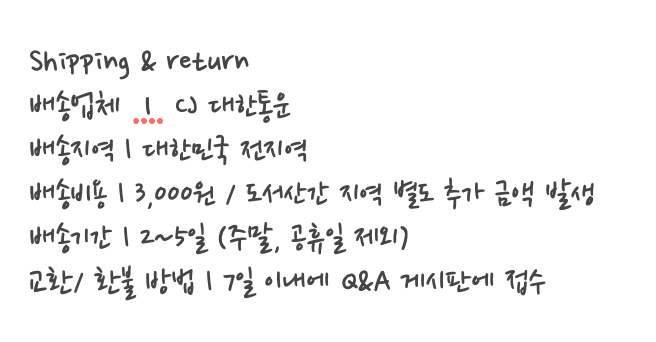 Shipping & return
배송업체 | CJ 대한통운
배송지역 | 대한민국 전지역
배송비용 | 3,000원 / 도서산간 지역 별도 추가 금액 발생
배송기간 | 2~5일 (주말, 공휴일 제외)
교환/ 환불 방법 | 7일 이내에 Q&A 게시판에 접수